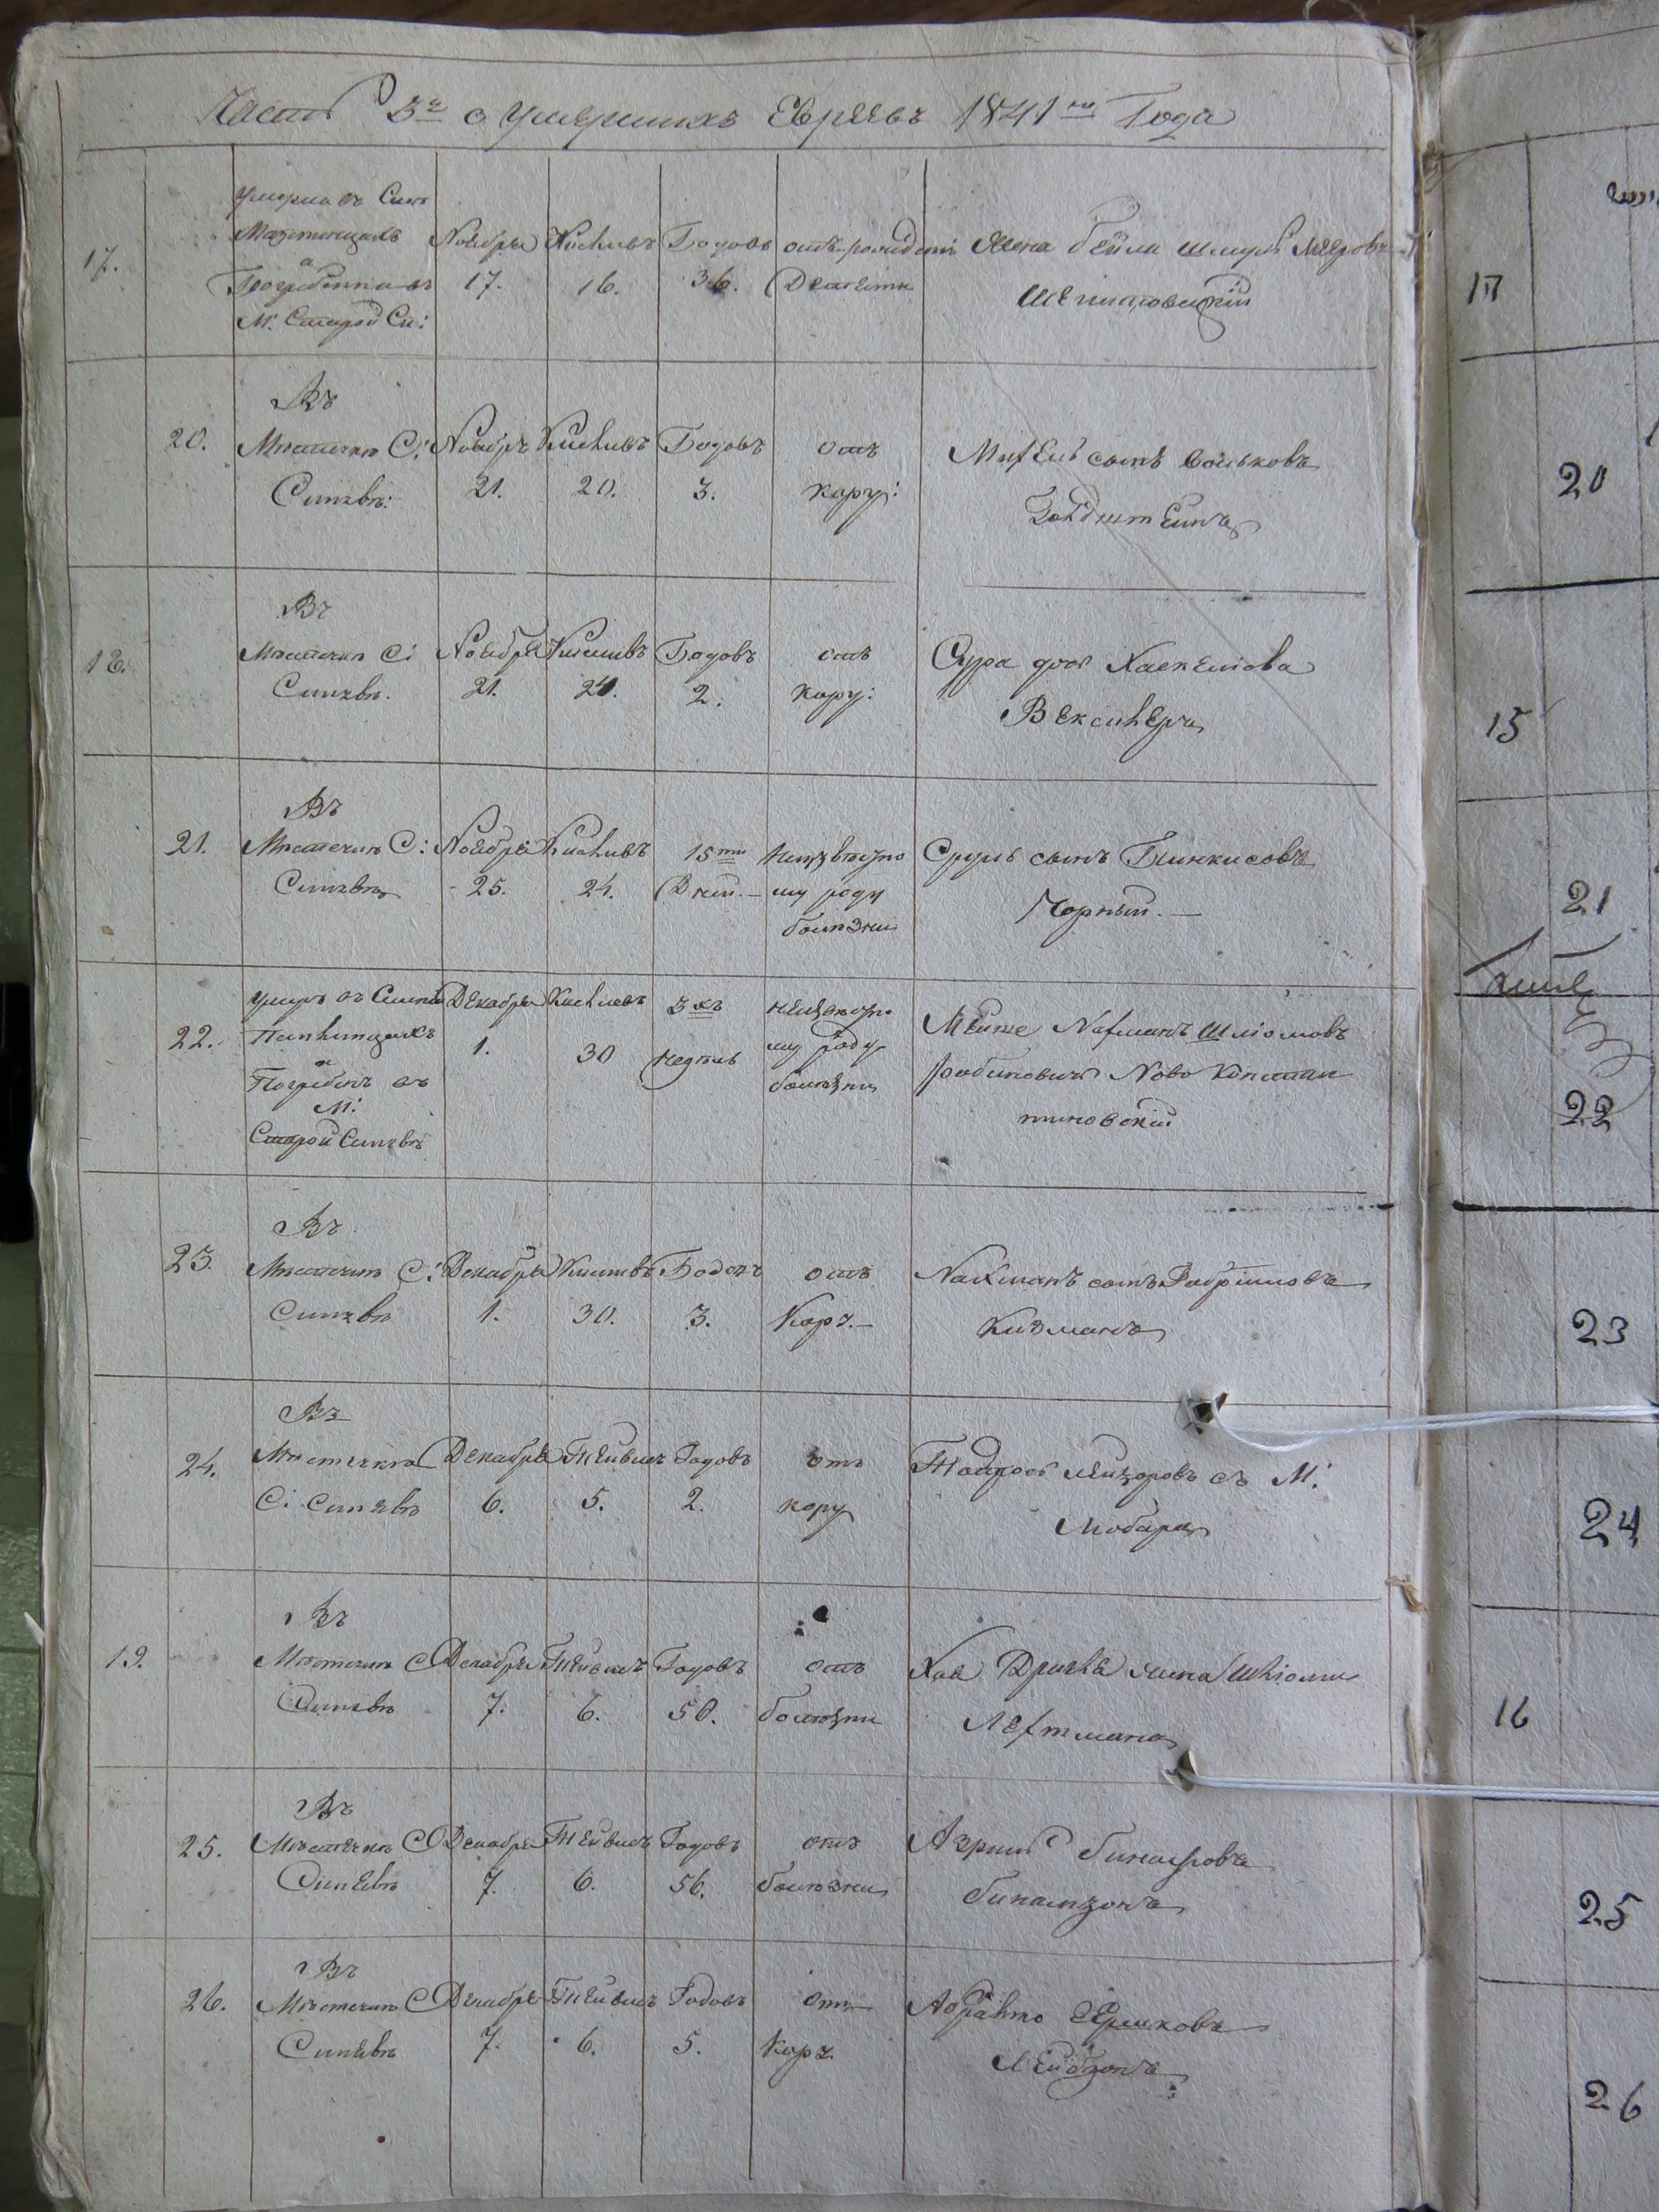 Часть 3я о умершихъ Евреевъ 1841го Года
17.
умерла въ Сип:
а
Погребенна въ
М: Старой Си:
Ноября
17.
Кисливъ
16.
Годовъ
36.
отъ рожденія
Жена бейла Шмуль Мееровъ
20.
Въ
Мѣстечкѣ С:
Синявѣ:
Ноября
21.
Кисливъ
20.
Годовъ
3.
отъ
кору:
сынъ Волькова
Голдштейнъ
18.
Въ
Мѣстечкѣ С:
Синявѣ.
Ноября
21.
Кисливъ
20.
Годовъ
2.
отъ
кору:
Сура дочь Хаскелiова
Векслеръ
21.
Въ
Мѣстечкѣ С:
Синявѣ
Ноября
25.
Кисливъ
24.
15ти
Дней.—
Неизвѣстно
му роду
болѣзни
Сруль сынъ Пинкисовъ
Чорный.—
22.
умеръ въ
и
Погребенъ въ
М:
Старой Синявѣ
Декабря
1.
Кислевъ
30
3хъ
Недель
неизвѣстно
му роду
болѣзни
Нахманъ Шліомовъ
Рабиновичъ Ново Констан
тиновскій
23.
Въ
Мѣстечкѣ С:
Синявѣ
Декабря
1.
Кисливъ
30.
Годовъ
3.
отъ
Кору.—
Нахманъ сынъ Габріилова
Кизманъ
24.
Въ
Мѣстечкѣ
С: Синявѣ
Декабря
6.
Тейвисъ
5.
Годовъ
2.
отъ
кору
Тодрось Лейзоровъ съ М:
Любара
19.
Въ
Мѣстечкѣ С
Синявѣ
Декабря
7.
Тейвисъ
6.
Годовъ
50.
отъ
болѣзни
Хая жена Шліомы
Лехтмана
25.
Въ
Мѣстечкѣ С
Синявѣ
Декабря
7.
Тейвисъ
6.
Годовъ
56.
отъ
болѣзни
Азриль
26.
Въ
Мѣстечкѣ С
Синявѣ
Декабря
7.
Тейвисъ
6.
Годовъ
5.
отъ
Кору.
Лейбзонъ
17
20
15
21
22
23
24
16
25
26